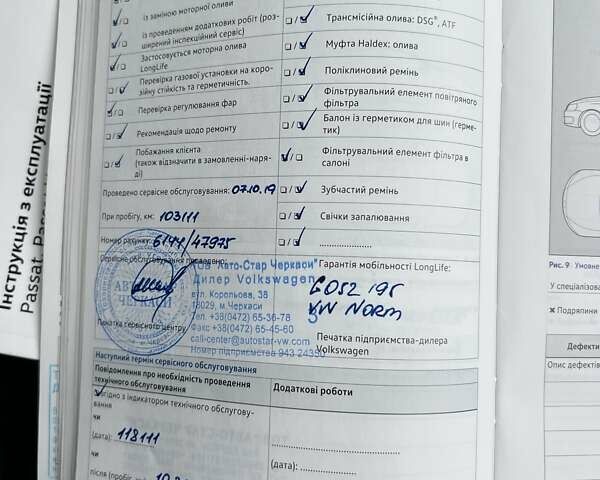 із заміною моторної оливи
із проведенням додаткових робіт (роз-
ширений інспекційний сервіс)
Застосовується моторна олива
LongLife
Перевірка газової установки на коро-
зійну стійкість та герметичність.
Перевірка регулювання фар
Рекомендація щодо ремонту
Побажання клієнта
(також відзначити в замовленні-наря-
ді)
Проведено сервісне обслуговування: 07.10.19
При пробігу, км: 103111
Номер рахунку: 6144/47975
Сервісне обслуговування проведено:
Трансмісійна олива: DSG®, ATF
Муфта Haldex: олива
Поликлиновий ремінь
Фільтрувальний елемент повітряного
фільтра
Балон із герметиком для шин (герме-
тик)
Фільтрувальний елемент фільтра в
салоні
Зубчастий ремінь
Свічки запалювання
....................
ТОВ "Авто-Стар Черкаси"
Дилер Volkswagen
вул. Корольова, 38
18029, м.Черкаси
Тел. +38(0472) 65-36-78
Факс +38(0472) 65-45-60
call-center@autostar-vw.com
Номер підприємства 943 24350
ЧЕРКАСИ
3
Печатка сервісного центру
Гарантія мобільності LongLife:
G052 195
VW NORM
Печатка підприємства-дилера
Volkswagen
Наступний термін сервісного обслуговування
Повідомлення про необхідність проведення
технічного обслуговування
Згідно з індикатором технічного обслугову-
вання
чи
(дата): 118111
чи
після (пробіг
Додаткові роботи
(дата):
Інструкція з експлуатації
Passat
Рис. 9 Умовне
У спеціалізова
✖ Подряпини
Дефекти
Опис дефектів